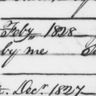 Feby 1828
by me
Decr. 1827